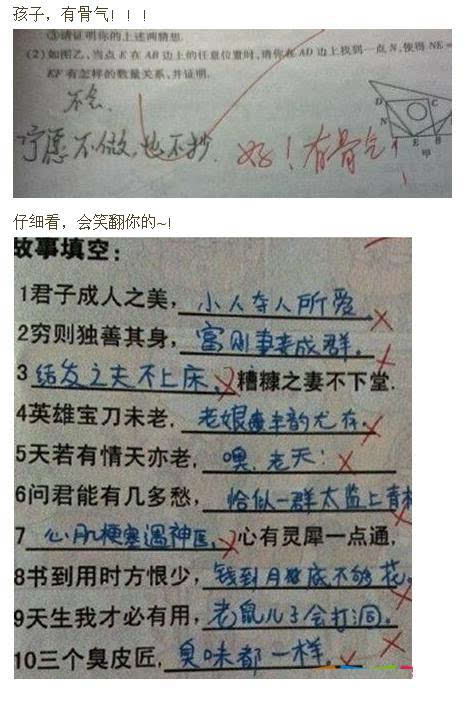 孩子，有骨气！！！
③请证明你的上述两猜想.
(2)如图乙,当点 E 在 AB 边上的任意位置时,请你在 AD 边上找到一点 N, 使得 NE=
EF 有怎样的数量关系,并证明.
不会.
宁愿不做,也不抄.
好！有骨气！
D C
N
A E B
甲
仔细看，会笑翻你的~!
故事填空：
1君子成人之美，小人夺人所爱.
2穷则独善其身，富则妻妾成群.
3结发之夫不上床，糟糠之妻不下堂.
4英雄宝刀未老，老娘丰韵尤存.
5天若有情天亦老，噢,老天!
6问君能有几多愁，恰似一群太监上青
7心肌梗塞遇神医，心有灵犀一点通，
8书到用时方恨少，钱到月底不够花.
9天生我才必有用，老鼠儿子会打洞.
10三个臭皮匠，臭味都一样.